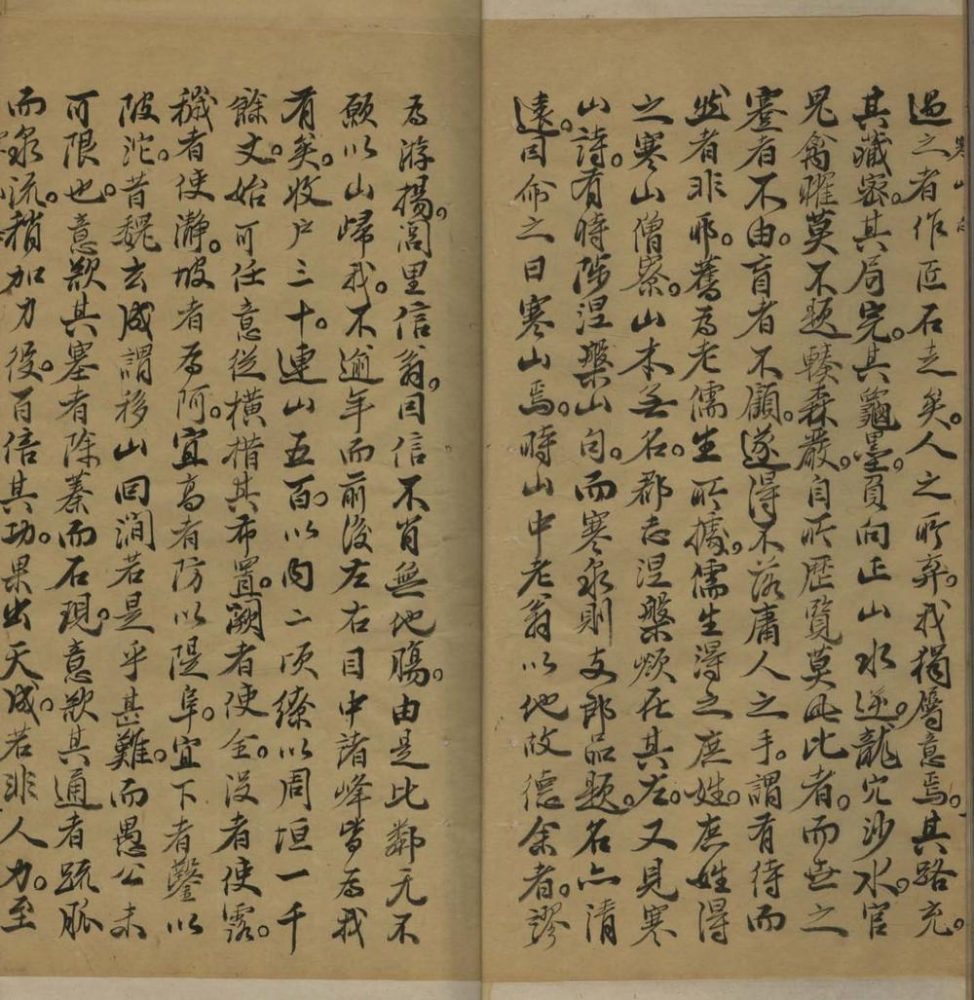 過之者作匠石走矣。人之所棄。我獨屬意焉。其路充。
其藏密。其局完。其龜墨。負向正山水逆。龍穴沙水。官
鬼禽曜莫不題輳森嚴。自所歷覽莫此比者。而世之
蹇者不由。盲者不顧。遂得不落庸人之手。謂有待而
然者非耶。舊為老儒生所據。儒生得之庶姓。庶姓得
之寒山僧寮。山本無名。郡志涅槃煩在其左。又見寒
山詩。有時陟涅槃山句。而寒泉則支郎品題。名亦清
遠。因命之曰寒山焉。時山中老翁以地故德余者。謬
為游揚。閭里信翁。因信不肖無他腸。由是比鄰无不
願以山歸我。不逾年而前後左右目中諸峰皆為我
有矣。收戶三十。連山五百。以內二頃繚以周垣一千
餘丈。始可任意從橫楷其布置。闕者使全。沒者使露。
穢者使瀞。坡者為阿。宜高者防以隄阜。宜下者鑿以
陂沱。昔魏去成謂移山回澗若是乎甚難。而愚公未
可限也。意欲其塞者除蓁而石現。意欲其通者疏脈
而泉流。稍加力役。百倍其功。果出天成。若非人力。至